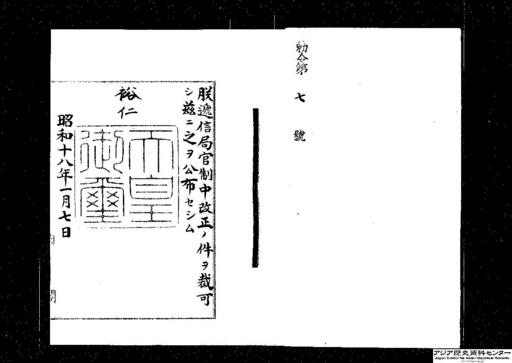 勅令第七號
朕遞信局官制中改正ノ件ヲ裁可
シ茲ニ之ヲ公布セシム
裕仁
天皇御璽
昭和十八年一月七日
内閣
アジア歴史資料センター
Japan Center for Asian Historical Records